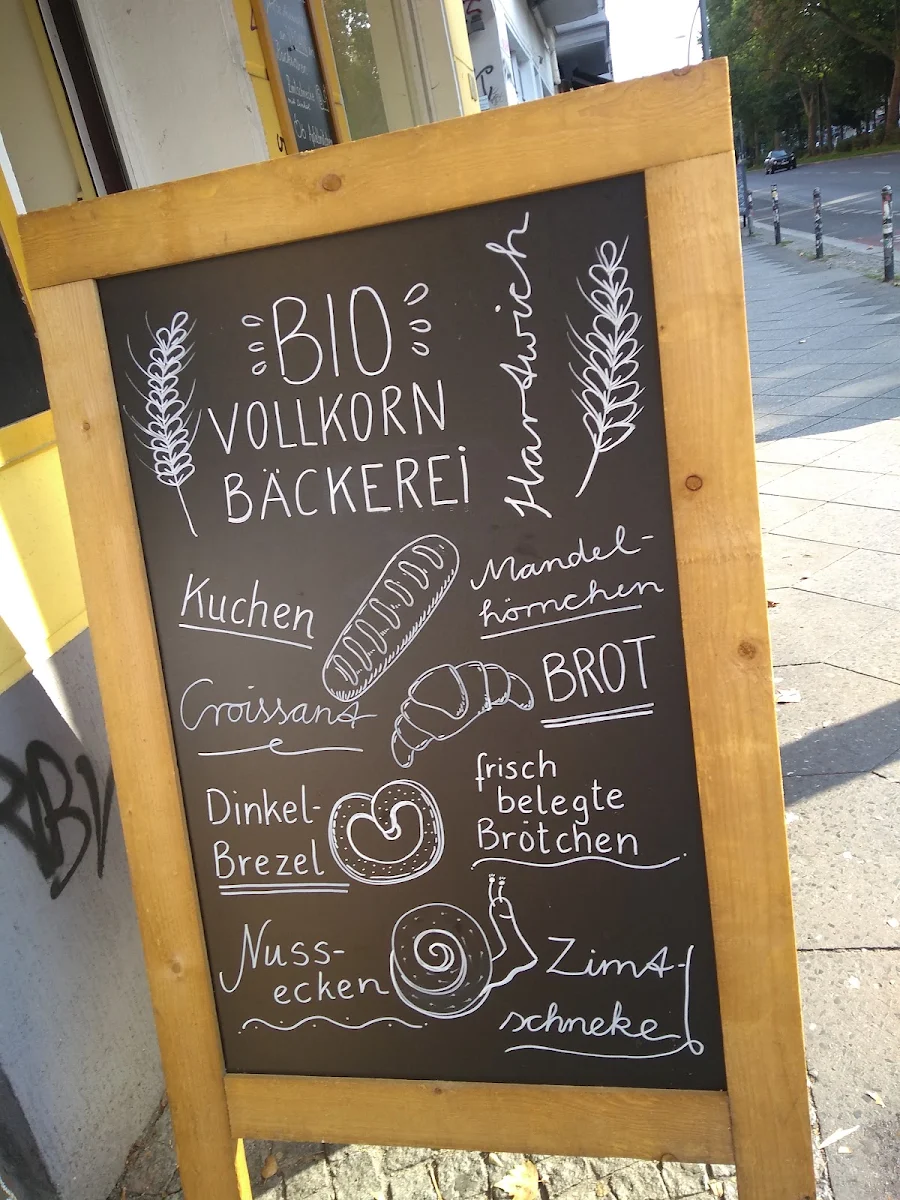 BIO
VOLLKORN
BÄCKEREI
Hartwich
Kuchen
Mandel-
hörnchen
Croissant
BROT
Dinkel-
Brezel
frisch
belegte
Brötchen
Nuss-
ecken
Zimt-
schneke